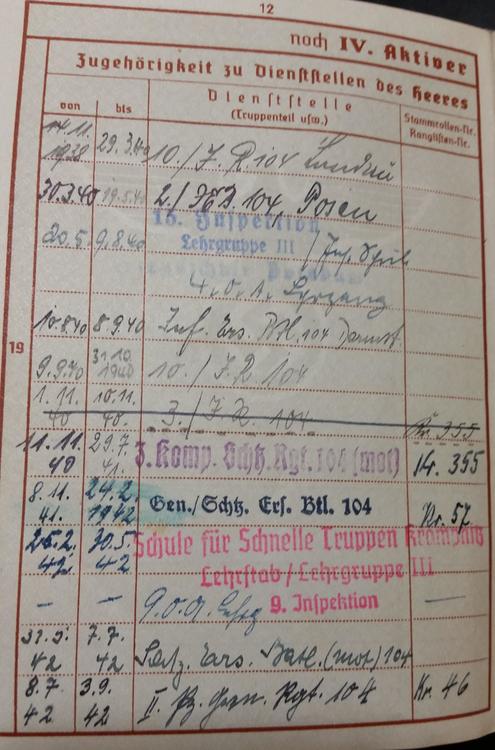 12
noch IV. Aktiver
Zugehörigkeit zu Dienststellen des Heeres
von
bis
Dienststelle
(Truppenteil usw.)
Stammrollen-Nr.
Ranglisten-Nr.
14.11. 29.3.40
10./ J. R. 104 Landau
30.3.40 19.5.40 2./ 104, Posen
15. Inspektion
20.5. 9.8.40 Lehrgruppe III / Inf. Schule
4. O. A. Lehrgang
10.8.40 8.9.40 Inf. Ers. Btl. 104
19
9.9.40 31.10. 1940 10./ J.R. 104
1.11. 40 10.11. 40. 3./ J.R. 104 Nr. 355
11.11. 40 29.7. 41. 3. Komp. Schtz. Rgt. 104 (mot) 14. 355
8.11. 41. 24.2. 1942 Gen./Schtz. Ers. Btl. 104 Nr. 57
25.2. 42 30.5. 42 Schule für Schnelle Truppen Krampnitz
Lehrstab / Lehrgruppe III
9. Inspektion
– – 9. O. A. –
7.7. 42 42 Ers. Batl. (mot) 104
8.7. 42 3.9. 42 II. Pz. Gren. Rgt. 104 Nr. 46